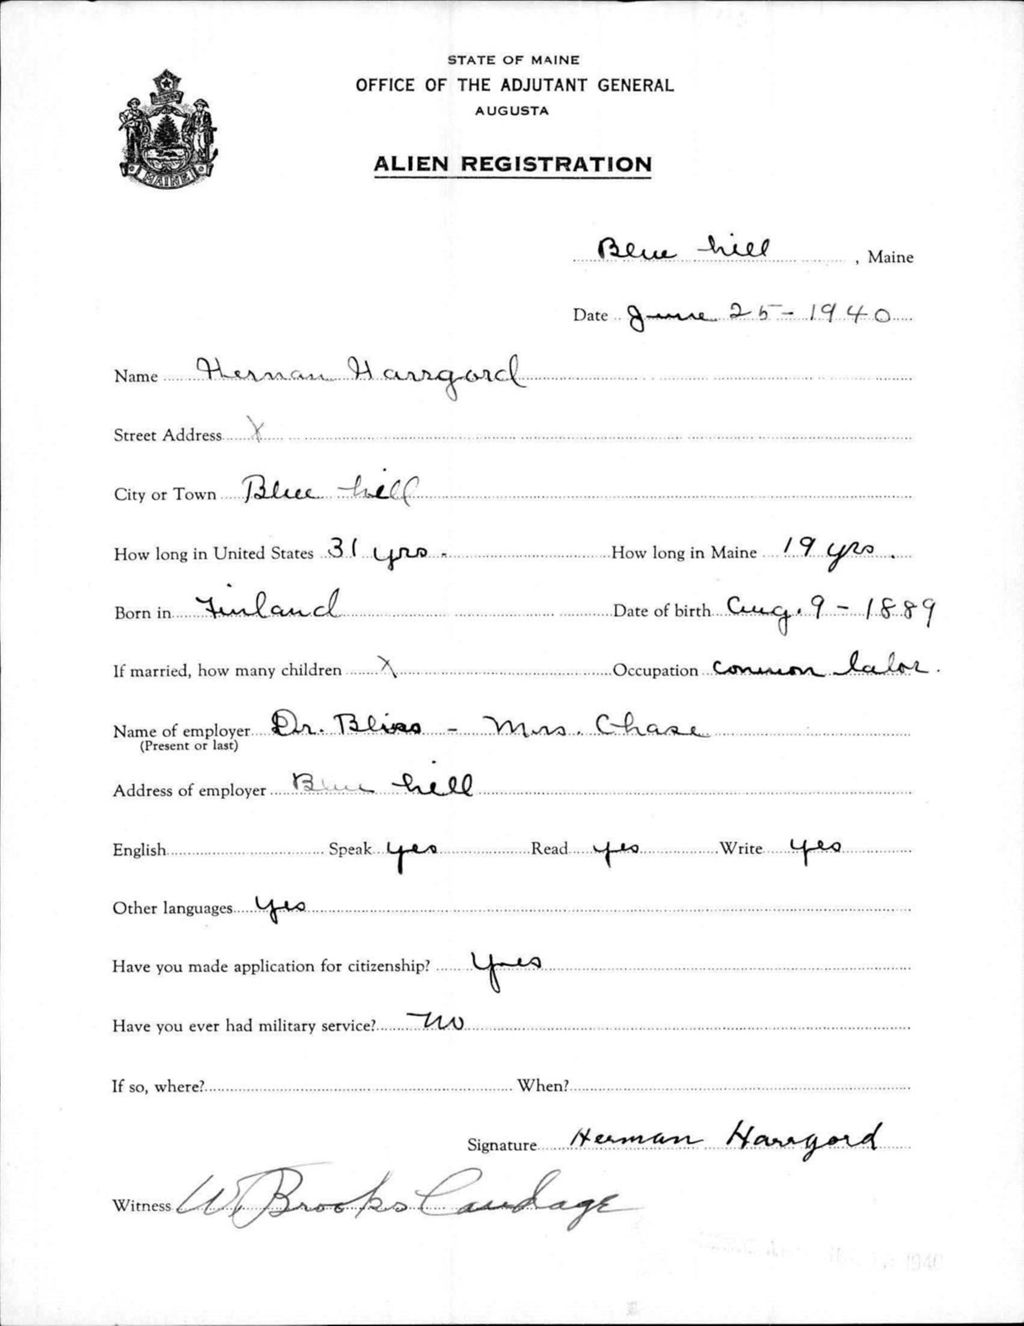 STATE OF MAINE
OFFICE OF THE ADJUTANT GENERAL
AUGUSTA
ALIEN REGISTRATION
MAINE
Blue hill, Maine
Date June 25-1940
Name Herman Harrgord
Street Address X
City or Town Blue hill
How long in United States 31 yrs. How long in Maine 19 yrs.
Born in Finland Date of birth Aug. 9 - 1889
If married, how many children X Occupation common labor.
Name of employer Dr. Bliss - Mrs. Chase
(Present or last)
Address of employer Blue hill
English Speak yes Read yes Write yes
Other languages yes
Have you made application for citizenship? Yes
Have you ever had military service? no
If so, where? When?
Signature Herman Harrgord
Witness W. Brooks Candage
1940